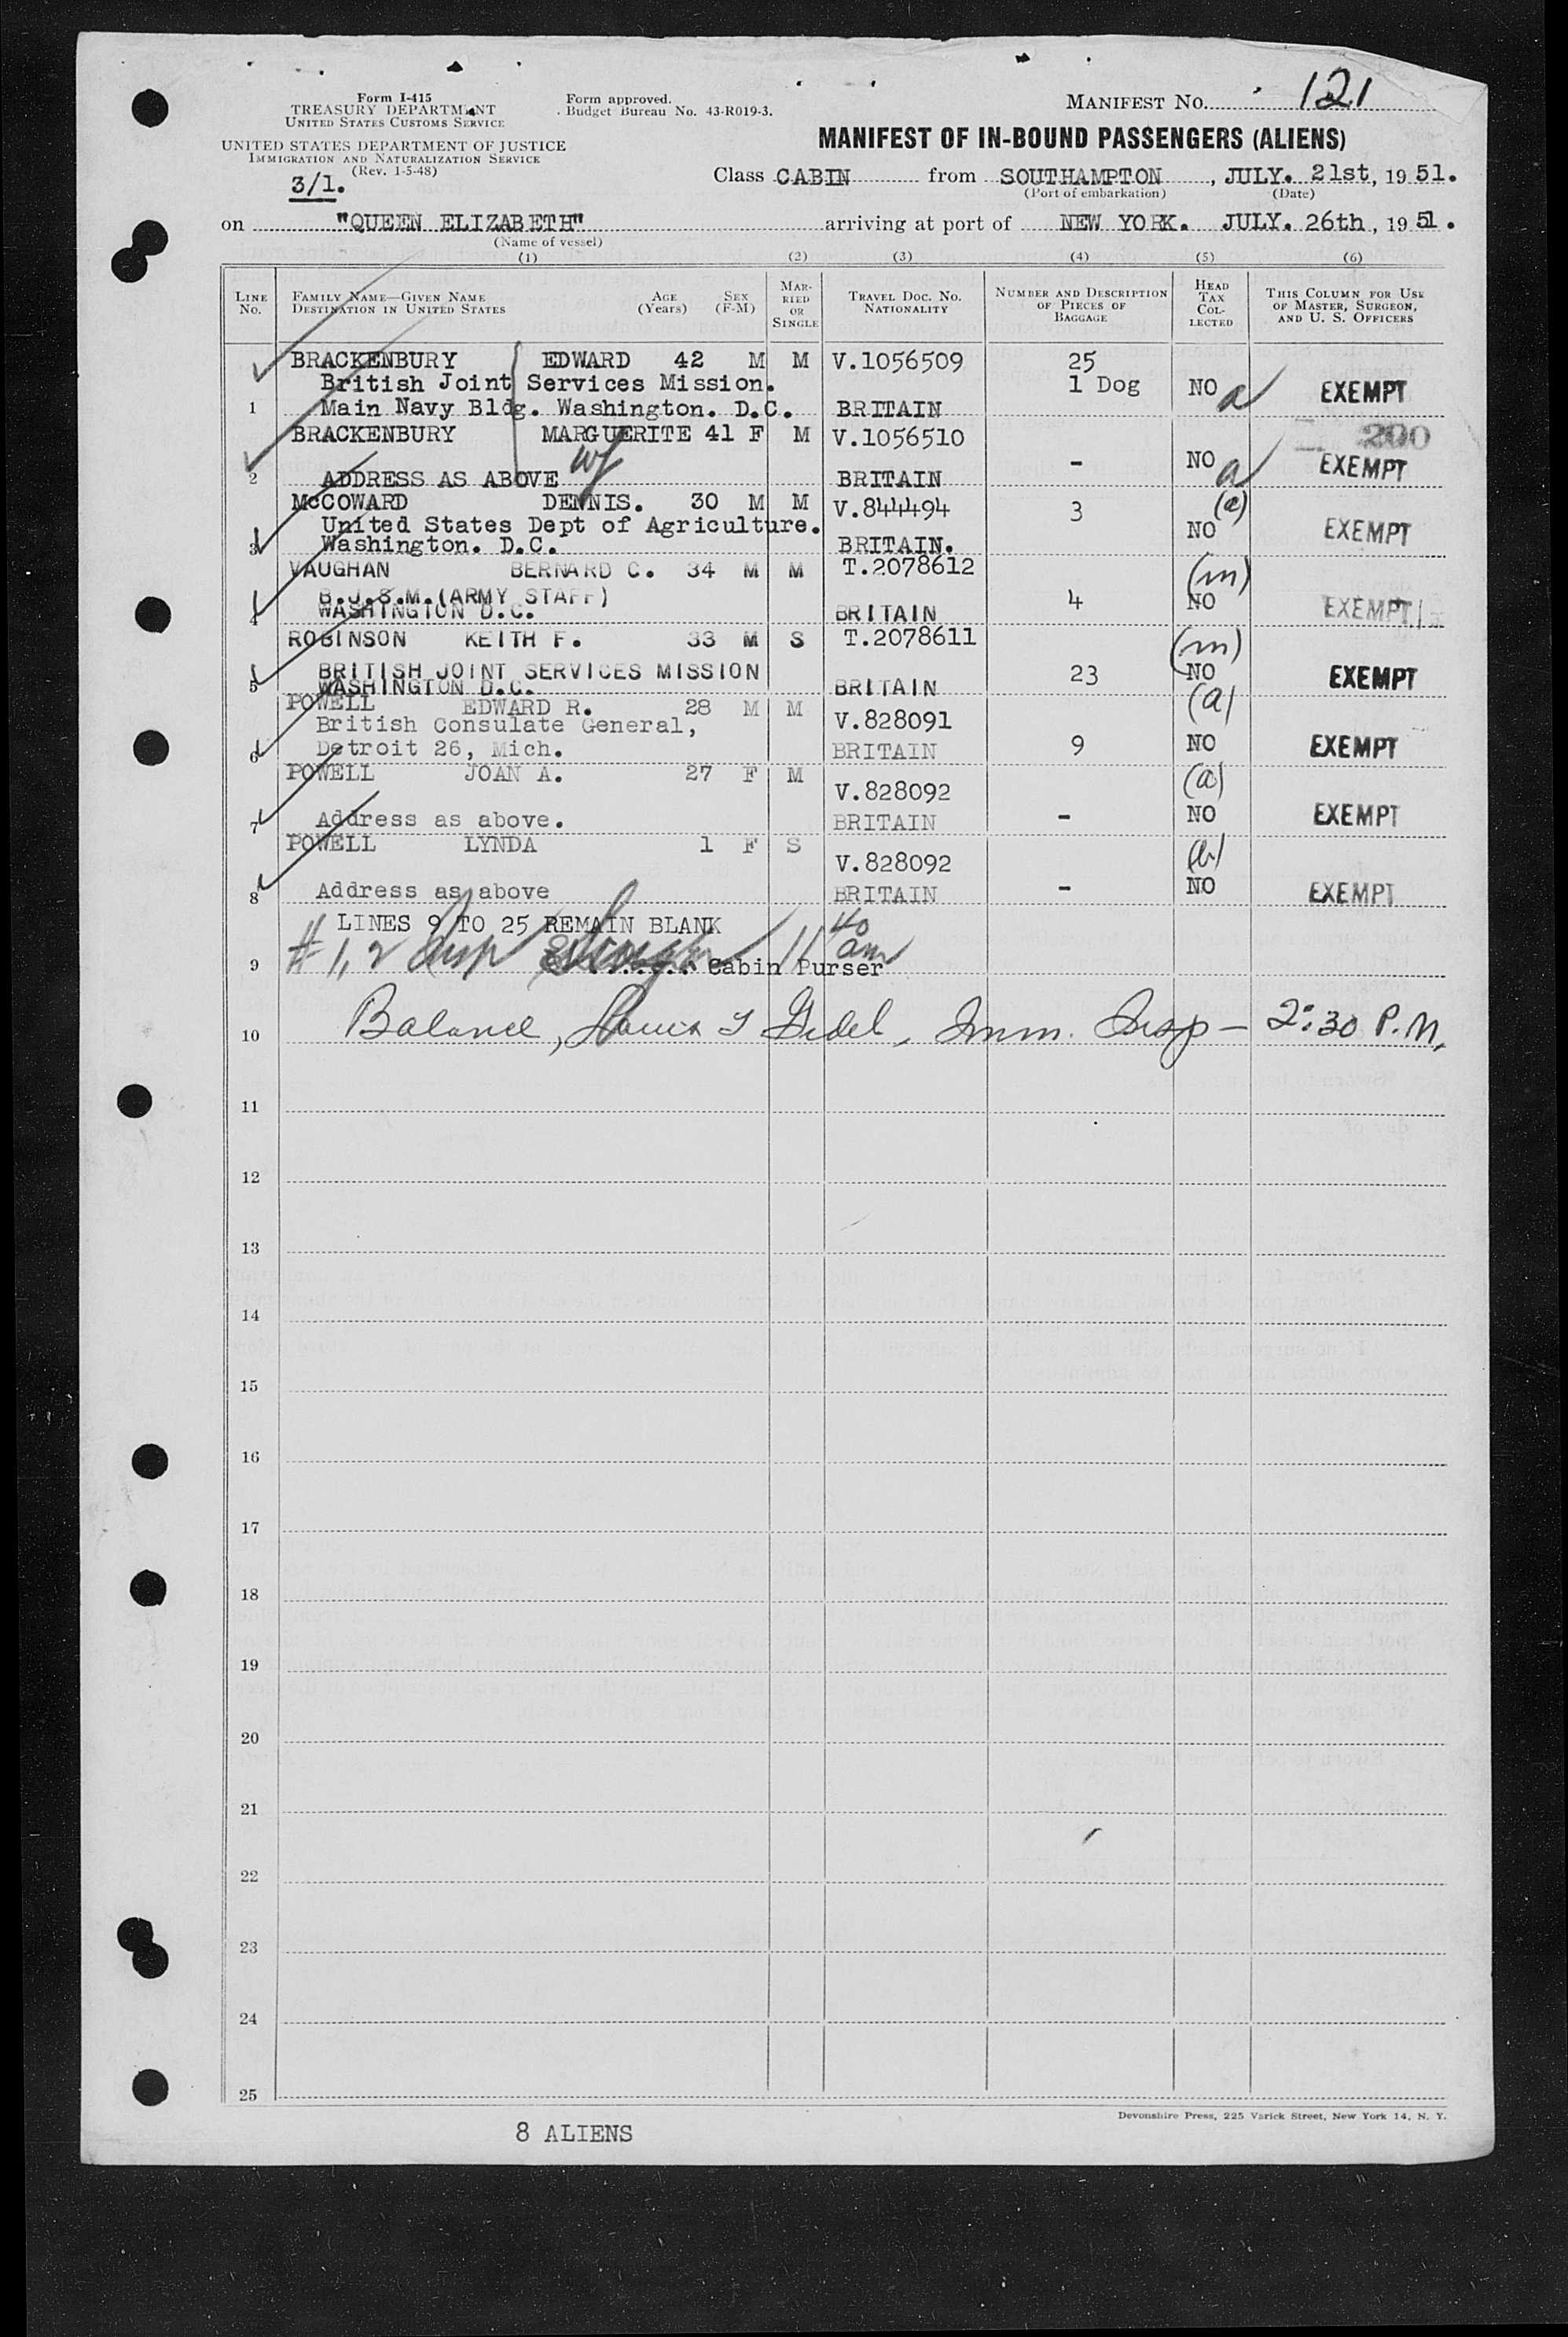 Form I-415
TREASURY DEPARTMENT
UNITED STATES CUSTOMS SERVICE
UNITED STATES DEPARTMENT OF JUSTICE
IMMIGRATION AND NATURALIZATION SERVICE
(Rev. 1-5-48)
3/1.
Form approved.
Budget Bureau No. 43-R019-3.
MANIFEST NO. 121
MANIFEST OF IN-BOUND PASSENGERS (ALIENS)
Class CABIN from SOUTHAMPTON, JULY. 21st, 1951.
(Port of embarkation) (Date)
on "QUEEN ELIZABETH" arriving at port of NEW YORK. JULY. 26th, 1951.
(Name of vessel)
(1) (2) (3) (4) (5) (6)
LINE No. FAMILY NAME—GIVEN NAME DESTINATION IN UNITED STATES AGE (Years) SEX (F-M) MARRIED OR SINGLE TRAVEL DOC. NO. NATIONALITY NUMBER AND DESCRIPTION OF PIECES OF BAGGAGE HEAD TAX COLLECTED THIS COLUMN FOR USE OF MASTER, SURGEON, AND U. S. OFFICERS
BRACKENBURY EDWARD 42 M M V.1056509 25
British Joint Services Mission. 1 Dog NO a EXEMPT
1 Main Navy Bldg. Washington. D.C. BRITAIN
BRACKENBURY MARGUERITE 41 F M V.1056510 200
wf - NO a EXEMPT
2 ADDRESS AS ABOVE BRITAIN
McCOWARD DENNIS. 30 M M V.844494 3 (a)
United States Dept of Agriculture. NO EXEMPT
3 Washington. D.C. BRITAIN.
VAUGHAN BERNARD C. 34 M M T.2078612 (m)
B.J.S.M.(ARMY STAFF) 4 NO EXEMPT
4 WASHINGTON D.C. BRITAIN
ROBINSON KEITH F. 33 M S T.2078611 (m)
BRITISH JOINT SERVICES MISSION 23 NO EXEMPT
5 WASHINGTON D.C. BRITAIN
POWELL EDWARD R. 28 M M (a)
British Consulate General, V.828091
6 Detroit 26, Mich. BRITAIN 9 NO EXEMPT
POWELL JOAN A. 27 F M (a)
V.828092
7 Address as above. BRITAIN - NO EXEMPT
POWELL LYNDA 1 F S (b)
V.828092
8 Address as above BRITAIN - NO EXEMPT
LINES 9 TO 25 REMAIN BLANK
# 1, 2 Insp 11 40 am
9 Cabin Purser
10 Balance, Gidel, Imm. Insp - 2:30 P.M.
11
12
13
14
15
16
17
18
19
20
21
22
23
24
25
Devonshire Press, 225 Varick Street, New York 14, N. Y.
8 ALIENS